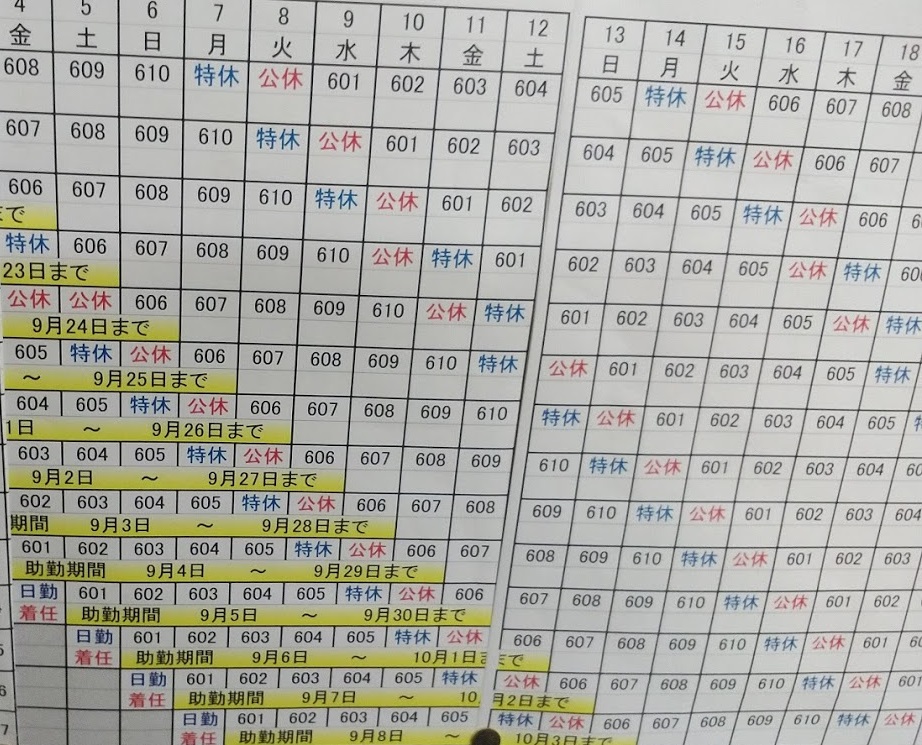 4 5 6 7 8 9 10 11 12 13 14 15 16 17 18
金 土 日 月 火 水 木 金 土 日 月 火 水 木 金
608 609 610 特休 公休 601 602 603 604 605 特休 公休 606 607 608
607 608 609 610 特休 公休 601 602 603 604 605 特休 公休 606 607
606 607 608 609 610 特休 公休 601 602 603 604 605 特休 公休 606
まで
特休 606 607 608 609 610 公休 特休 601 602 603 604 605 公休 特休
23日まで
公休 公休 606 607 608 609 610 公休 特休 601 602 603 604 605 公休 特休
9月24日まで
605 特休 公休 606 607 608 609 610 特休 公休 601 602 603 604 605 特休
～ 9月25日まで
604 605 特休 公休 606 607 608 609 610 特休 公休 601 602 603 604 605
1日 ～ 9月26日まで
603 604 605 特休 公休 606 607 608 609 610 特休 公休 601 602 603 604
9月2日 ～ 9月27日まで
602 603 604 605 特休 公休 606 607 608 609 610 特休 公休 601 602 603 604
期間 9月3日 ～ 9月28日まで
601 602 603 604 605 特休 公休 606 607 608 609 610 特休 公休 601 602 603
助勤期間 9月4日 ～ 9月29日まで
日勤 601 602 603 604 605 特休 公休 606 607 608 609 610 特休 公休 601 602
着任 助勤期間 9月5日 ～ 9月30日まで
日勤 601 602 603 604 605 特休 公休 606 607 608 609 610 特休 公休 601
着任 助勤期間 9月6日 ～ 10月1日まで
日勤 601 602 603 604 605 特休 公休 606 607 608 609 610 特休 公休 601
着任 助勤期間 9月7日 ～ 10月2日まで
日勤 601 602 603 604 605 特休 公休 606 607 608 609 610 特休 公休
着任 助勤期間 9月8日 ～ 10月3日まで